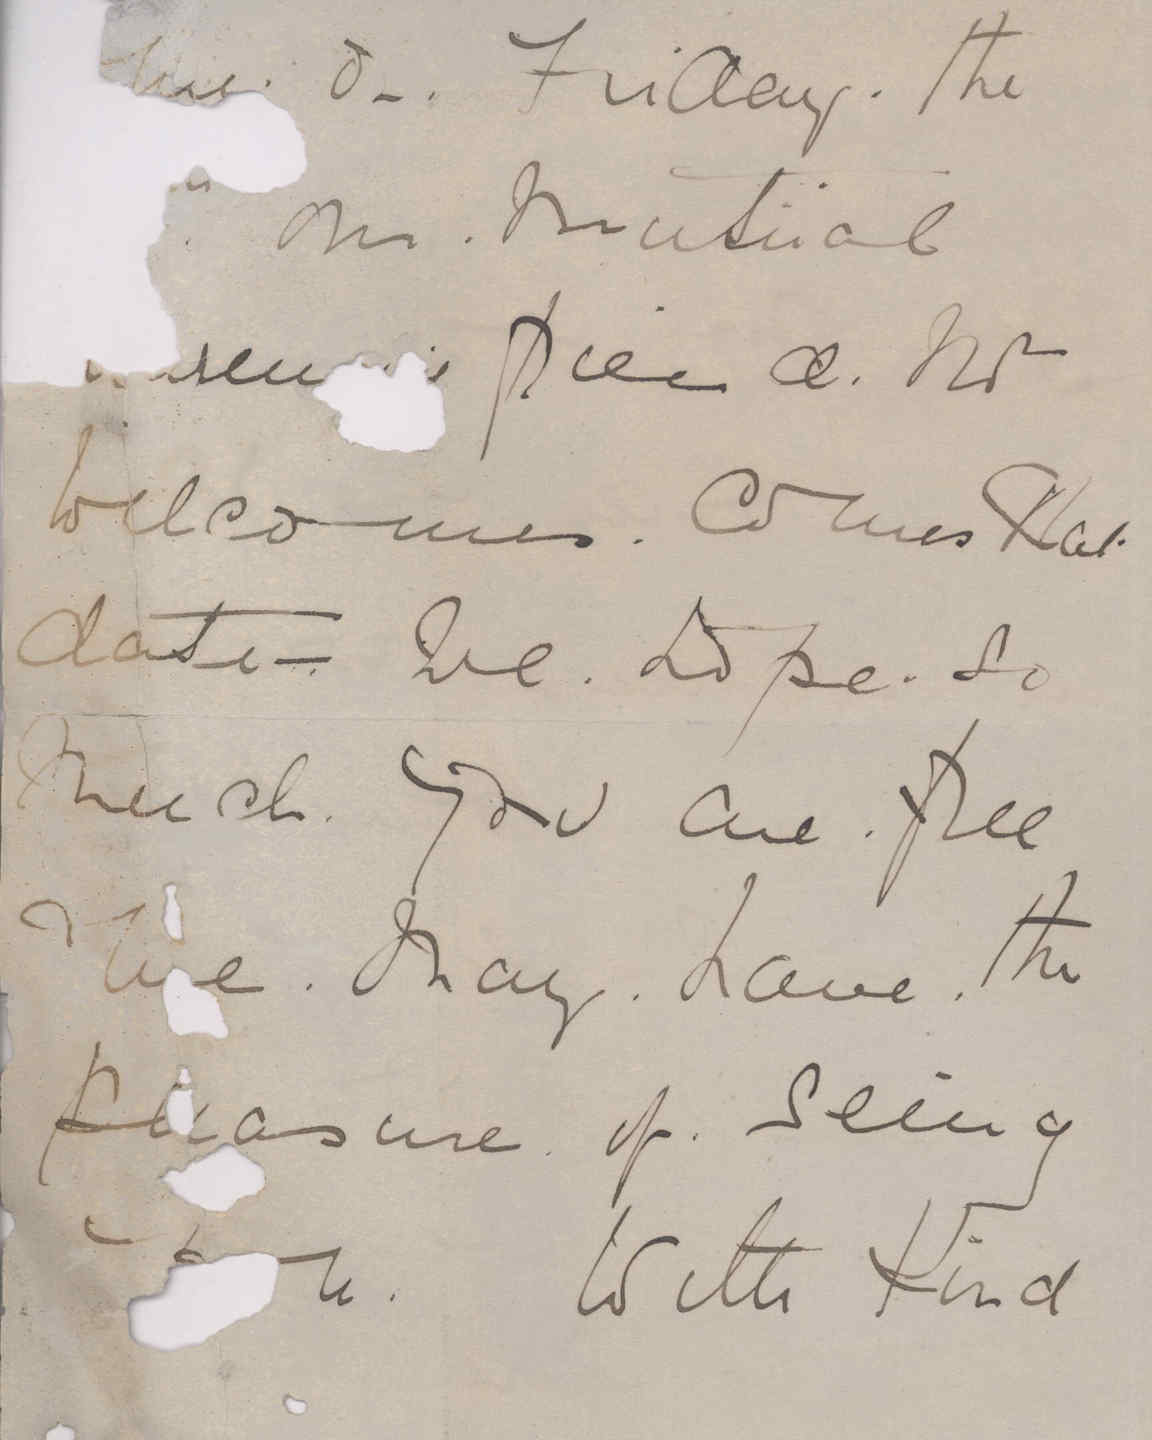 on. Friday. the
Mr. Mutual
friend. Mr
Welcomes. comes that
date - We. hope. so
much. you are. free
& we. may. have. the
pleasure. of. seeing
you. With Kind